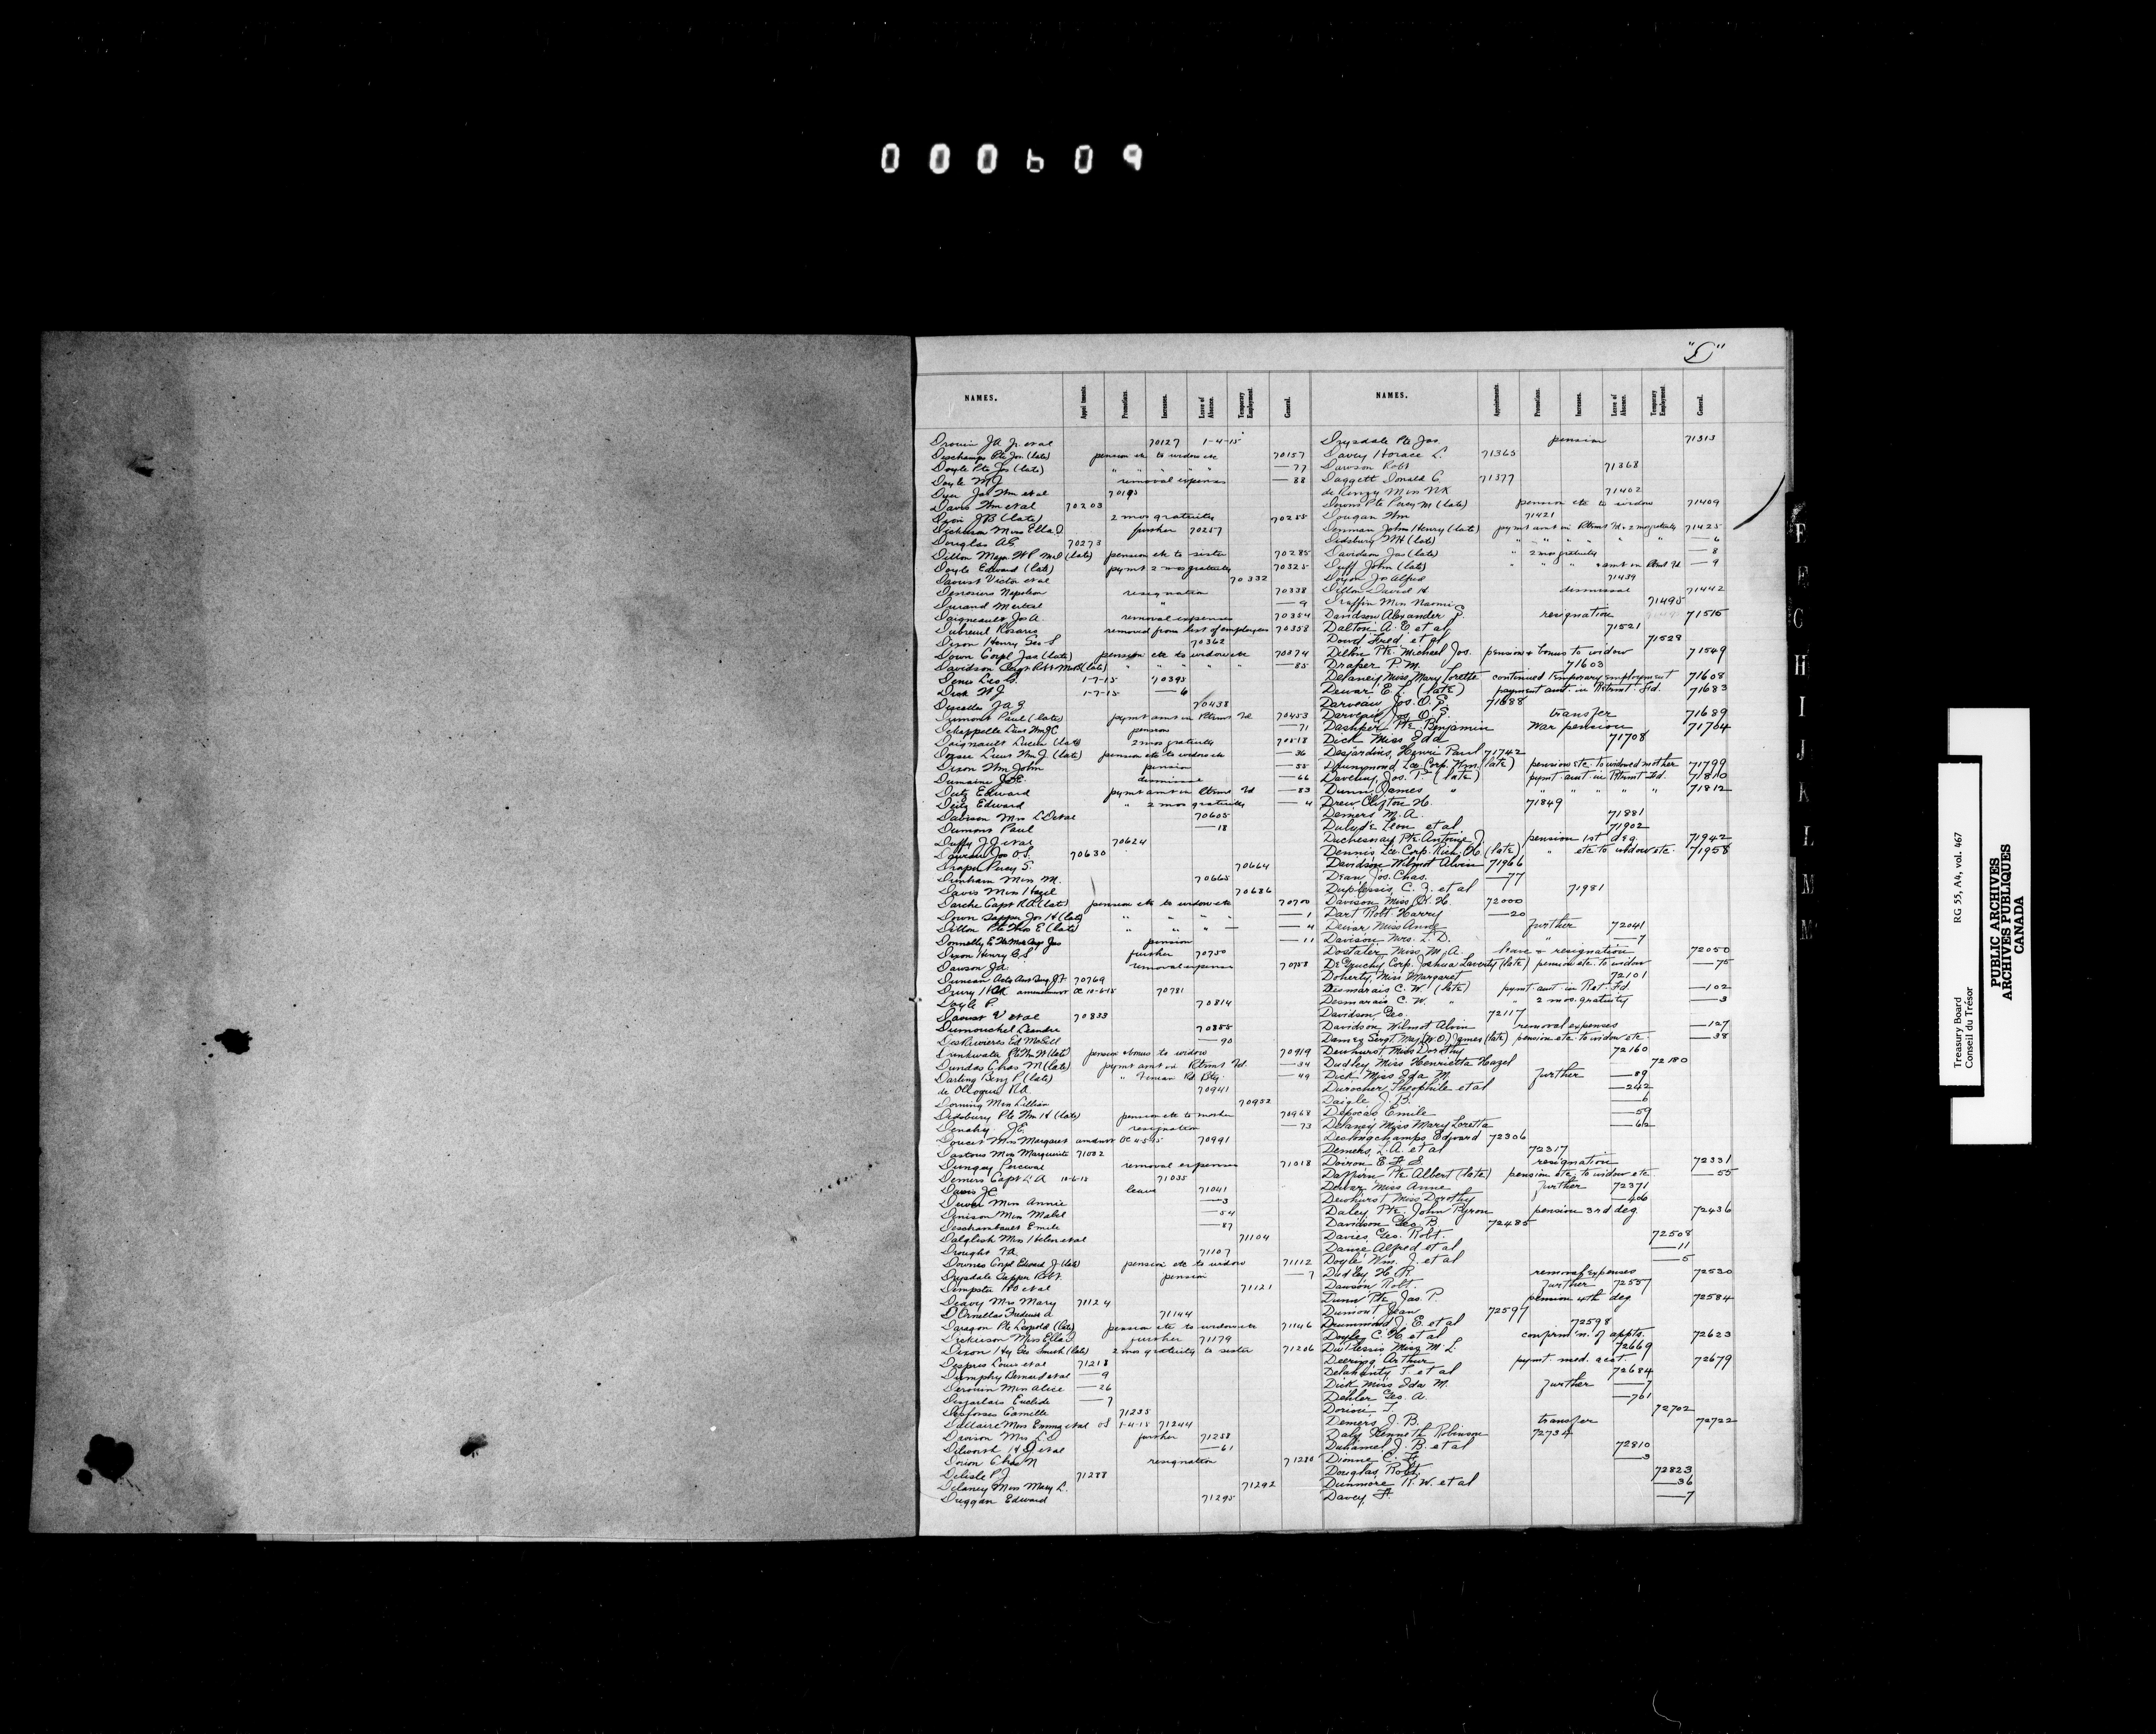 000609
"D"
NAMES. Appointments. Promotions. Increases. Leave of Absence. Temporary Employment. General.
Drouin J.A. Jr. et al 70127 1-4-15
Deschamps Pte Jos. (late) pension etc to widow etc 70157
Doyle Pte Jos (late) " " " " " —77
Doyle M J removal expenses —88
Dyer Jas Wm et al 70195
Davis Wm et al 70203
Dion J B (late) 2 mos gratuity 70255
Dickinson Miss Ella D further 70257
Douglas A G 70273
Dillon Major W P (late) pension etc to sister 70285
Doyle Edward (late) paymt 2 mos gratuity 70325
Daoust Victor et al 70332
Desrosiers Napoleon resignation 70338
Durand " —9
Daigneault Jos A. removal expenses 70354
Dubreuil Rosario removed from list of employees 70358
Dixon Henry Geo S. 70362
Down Corpl Jas (late) pension etc to widow etc 70374
Davidson (late) " " " " " —85
Denis Leo G. 1-7-15 70395
Dick W J 1-7-15 —6
J A 70438
Dumont Paul (late) paymt amt in Retrmt Fd 70453
Dechappelle Lieut Wm pension —71
Daigneault Lucien (late) 2 mos gratuity 70518
Lieut Wm J. (late) pension etc to widow etc —36
Dixon Wm John pension —55
Dansereau dismissal —66
Dietz Edward paymt amt in Retrmt Fd —83
Dietz Edward " 2 mos gratuity —4
Davison Mrs L D et al 70605
Dumont Paul —18
Duffy J J et al 70624
Jos O. S. 70630
Draper Percy S. 70664
Dunham Miss M. 70665
Davis Miss Hazel 70686
Darche Capt (late) pension etc to widow etc 70700
Down Sapper Jos H (late) " " " " —1
Dillon Pte Thos E (late) " " " — —4
Donnelly pension —11
Dixon Henry G S further 70750
Dawson J A. removal expenses 70758
Duncan 70769
Drury amendment OC 10-6-15 70781
Doyle P. 70814
Daoust V et al 70833
Dumouchel Leandre 70855
DesRivieres Ed McGill —90
Drinkwater Pte Wm W (late) pension + bonus to widow 70919
Dundas Chas M (late) paymt amt in Retrmt Fd —34
Darling Benj P (late) " —49
de R A. 70941
Dorning Miss Lillian 70952
Didsbury Pte Wm H (late) pension etc to mother 70968
Denahy J E. resignation —73
Doucet Miss Margaret amdmt OC 4-5-15 70991
Dastous Miss Marguerite 71002
Dungey Percival removal expenses 71018
Demers Capt L A 10-6-15 71035
Davis J C leave 71041
Dewar Miss Annie —3
Denison Miss Mabel —54
Deschambault Emile —87
Dalglish Miss Helen et al 71104
Drought 71107
Downes Corpl Edward J (late) pension etc to widow 71112
Drysdale Sapper Robt. pension —7
Dempster et al 71121
Deavy Mrs Mary 71124
D'Ornellas Frederick A 71144
Daragon Pte Leopold (late) pension etc to widow etc 71146
Dickinson Miss Ella D further 71179
Dixon Hy Geo Smith (late) 2 mos gratuity to sister 71206
Despres Louis et al 71218
Dumphy Bernard et al —9
Derouin Miss Alice —26
Desjarlais Euclide —7
Desfosses Camille 71235
Dallaire Miss Emma et al 1-4-15 71244
Davison Mrs L D further 71258
Dilworth et al —61
Dorion Chas N resignation 71280
Delisle P J 71288
Delaney Miss Mary L. 71292
Duggan Edward 71295
NAMES. Appointments. Promotions. Increases. Leave of Absence. Temporary Employment. General.
Drysdale Pte Jas. pension 71313
Davey Horace L. 71365
Dawson Robt 71368
Daggett Donald C. 71377
de Miss 71402
Pte Percy M (late) pension etc to widow 71409
Dougan Wm 71421
Denman John Henry (late) paymt amt in Retrmt Fd + 2 mos gratuity 71425
Didsbury W H (late) " " " " " " —6
Davidson Jas (late) " 2 mos gratuity —8
Duff John (late) " " " + amt in Retrmt Fd —9
Doyon Jos Alfred 71439
Dillon David H dismissal 71442
Draffin Miss Naomi 71495
Davidson Alexander P. resignation 71515
Dalton A. E et al 71521
Dowd Fred et al 71529
Dillon Pte. Michael Jos. pension + bonus to widow 71549
Draper P. M. 71603
Delaney Miss Mary Lorette continued temporary employment 71608
Dewar E L. (late) payment amt. in Retrmt. Fd. 71683
Darveau Jos. O. S. 71688
Darveau Jos. O. S. transfer 71689
Dashper Pte Benjamin War pension 71704
Dick Miss Ida 71708
Desjardins, Henri Paul 71742
Drummond Lce Corp. Wm. (late) pension etc. to widowed mother 71799
Daveluy, Jos. T (late) paymt amt in Retrmt. Fd. 71810
Dunn, James " " " " " " 71812
Drew Clifton H. 71849
Demers M. A. 71881
Dubyé Leon et al 71902
Duchesnay Pte. Antoine J. pension 1st deg. 71942
Dennis Lce. Corp. Rich. H. (late) " etc to widow etc. 71958
Davidson Wilmot Alvin 71966
Dean Jos. Chas. —77
Duplessis, C. Z. et al 71981
Davison Miss H. 72000
Dart Robt. Harry —20
Dewar Miss Anne further 72041
Davison Mrs. L. D. " —7
Dostaler Miss M. A. leave + resignation 72050
DeGruchy Corp. Joshua Laverty (late) pension etc. to widow —75
Doherty Miss Margaret 72101
Desmarais C. W. (late) pymt. amt. in Ret. Fd. —102
Desmarais C. W. " " 2 mos. gratuity —3
Davidson, Geo. 72117
Davidson Wilmot Alvin removal expenses —127
Sergt. Maj. (W.O.) James (late) pension etc. to widow etc —38
Dewhurst Miss Dorothy 72160
Dudley Miss Henrietta Hazel 72180
Dick Miss Ida M. further —89
Durocher Theophile et al —242
Daigle J. B. —6
Depocas Emile —59
Delaney Miss Mary Loretta —62
Deslongchamps Edward 72306
Demers, L. A. et al 72317
Doiron E. F. S. resignation 72331
Pte. Albert (late) pension etc. to widow etc —55
Dewar Miss Anne further 72371
Dewhurst Miss Dorothy —406
Daley Pte. John Byron pension 3rd deg. 72436
Davidson Geo. B. 72485
Davies, Geo. Robt. 72508
Alfred et al —11
Doyle Wm. J. et al —5
Dudley H. R. removal expenses 72530
Dawson Robt. further 72557
Dunn Pte Jas. P. pension 4th deg. 72584
Dumont Jean 72597
Drummond J. E. et al 72598
Doyley C. H. et al confirm'n. of appts. 72623
Duplessis Miss M. L. 72669
Deering Arthur pymt. med. acct. 72679
Delahunty T. et al 72684
Dick Miss Ida M. further —7
Dehler Geo. A. —701
Dorion T. 72702
Demers J. B. transfer 72722
Daly Kenneth Robinson 72734
Duhamel J. B. et al 72810
Dionne C. —3
Douglas, Robt. 72823
Dunmore R. W. et al —36
Davey F. —7
E
E
C
H
I
J
K
L
M
M
Treasury Board RG 55, A4, vol. 467
Conseil du Trésor
PUBLIC ARCHIVES
ARCHIVES PUBLIQUES
CANADA